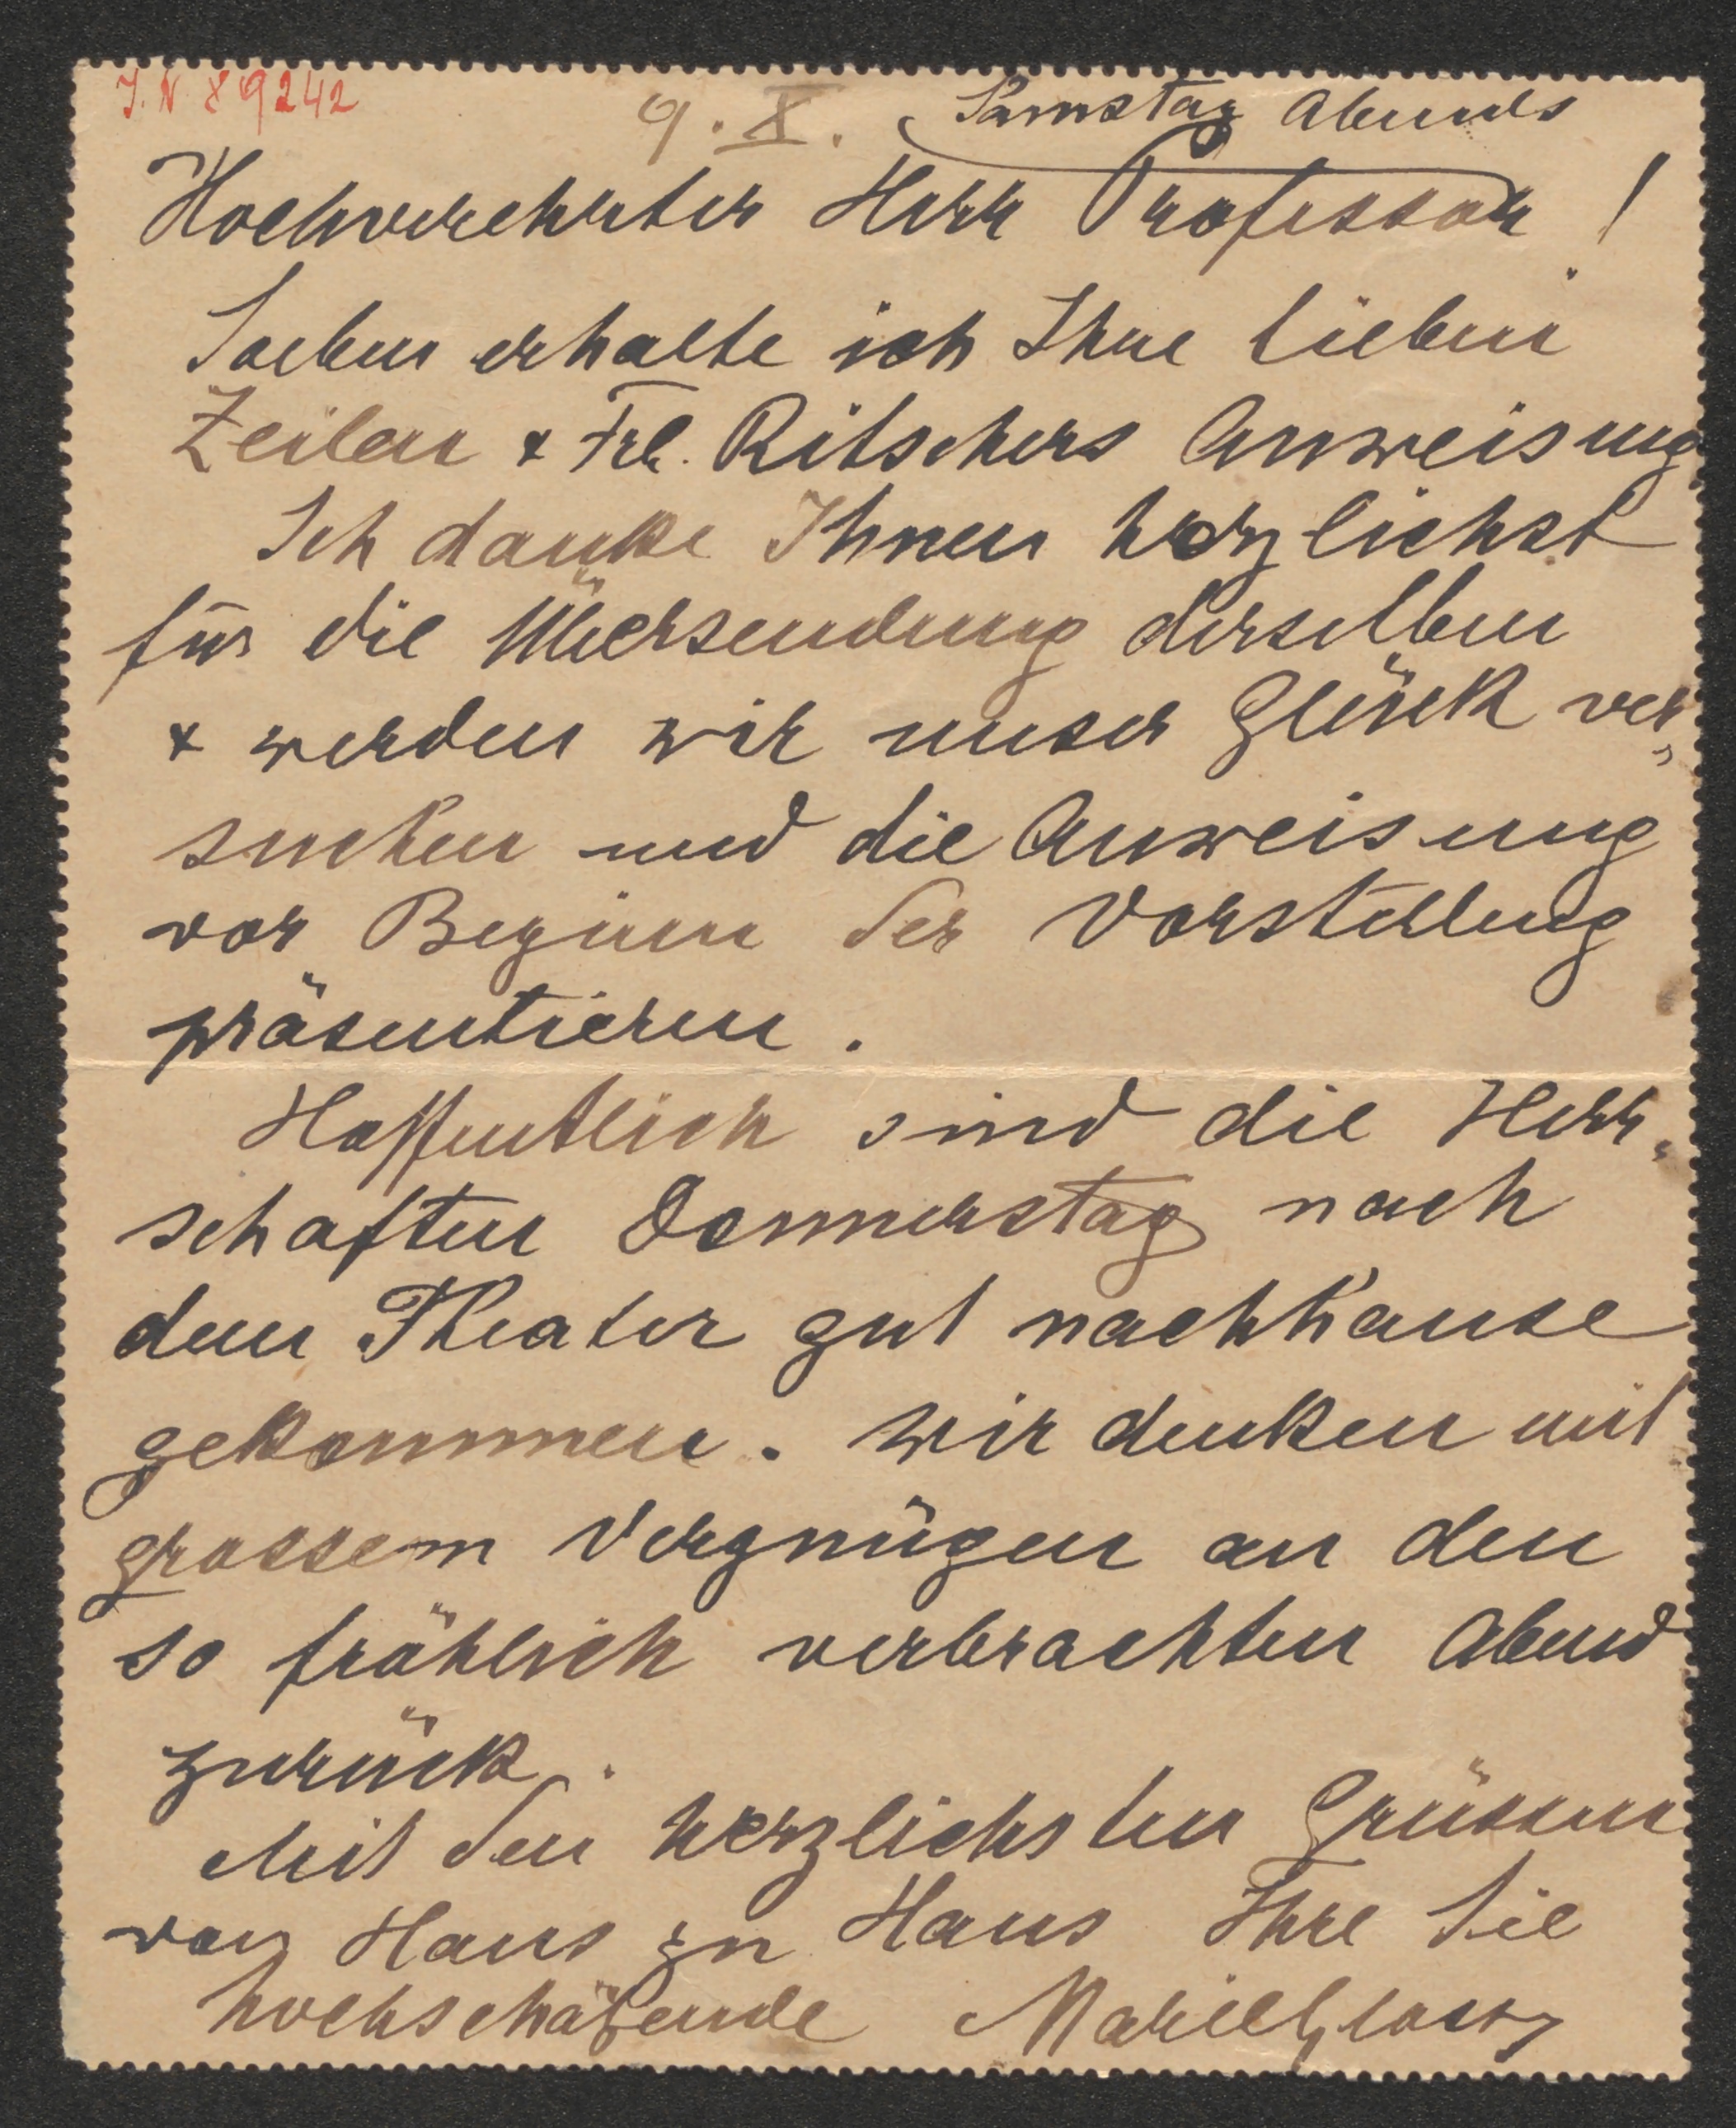 J. N. 89242
9. X. Samstag Abends
Hochverehrter Herr Professor!
Soeben erhalte ich Ihre lieben
Zeilen & Frl. Ritschers Anweisung
Ich danke Ihnen herzlichst
für die Übersendung derselben
& werden wir unser Glück ver„
suchen und die Anweisung
vor Beginn der Vorstellung
präsentieren.
Hoffentlich sind die Herr„
schaften Donnerstag nach
dem Theater gut nachhause
gekommen. Wir denken mit
grossem Vergnügen an den
so fröhlich verbrachten Abend
zurück.
Mit den herzlichsten Grüssen
von Haus zu Haus Ihre Sie
hochschätzende Marie Glossy